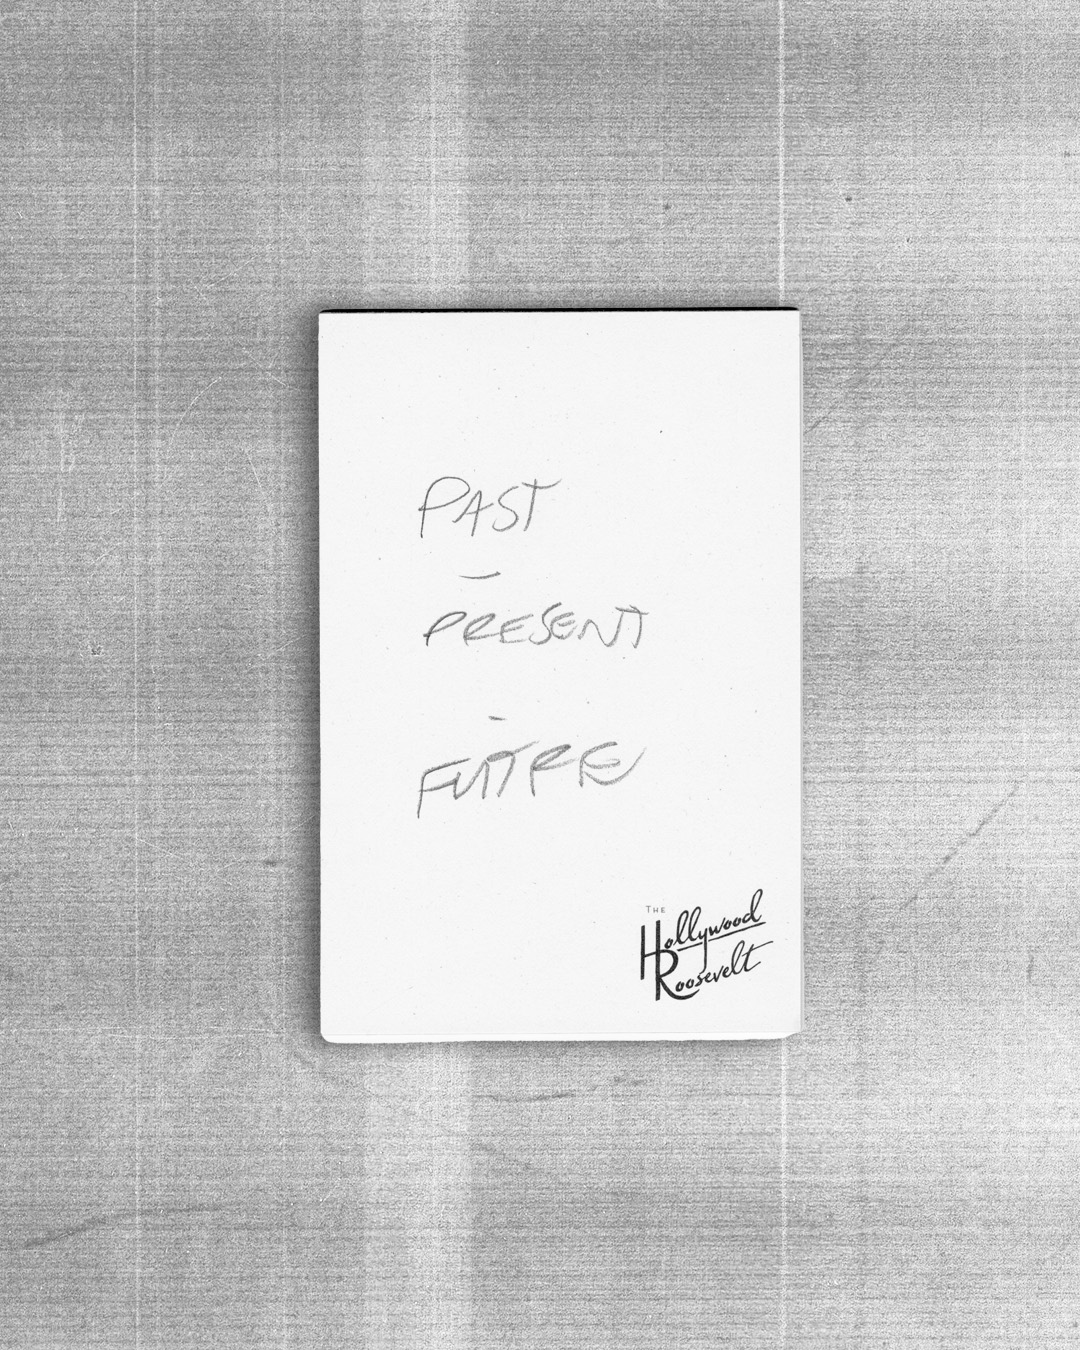 PAST
-
PRESENT
-
FUTRE
THE
Hollywood
Roosevelt